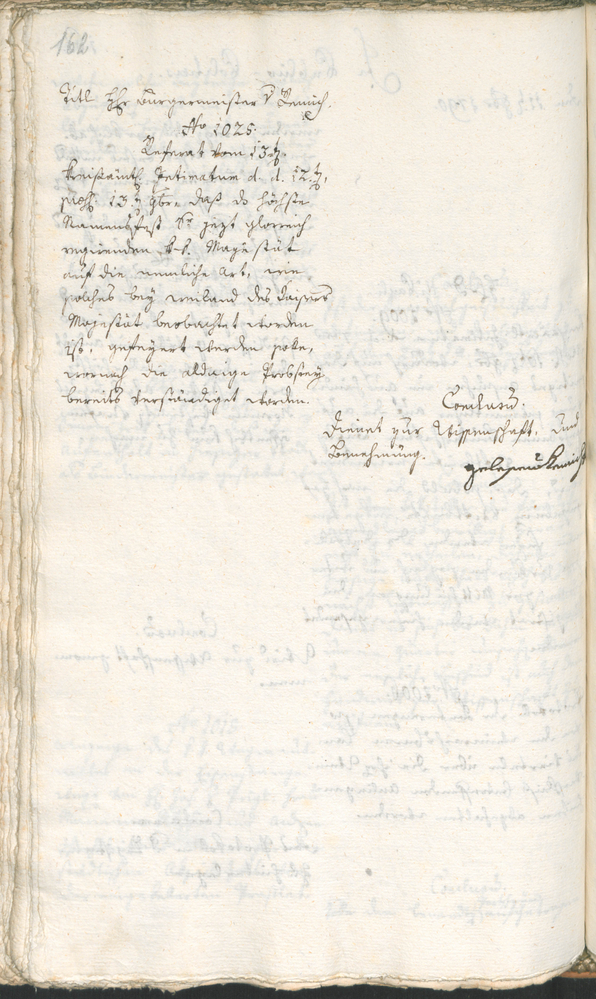 162
Titl. H. Hr. Bürgermeister v. Remich.
No 1025.
Referat vom 13ten
Kreisämtl. Intimatum d. d. 12ten,
präs. 13ten 9br. daß das höchste
Namensfest Sr. jezt glorreich
regierenden k. k. Majestät
auf die nemliche Art, wie
solches bey weiland des Kaisers
Majestät beobachtet worden
ist, gefeyert werden solle,
wornach die aldaige Probstey
bereits verständiget worden.
Conclusum.
Dienet zur Wissenschaft und
Benehmung.